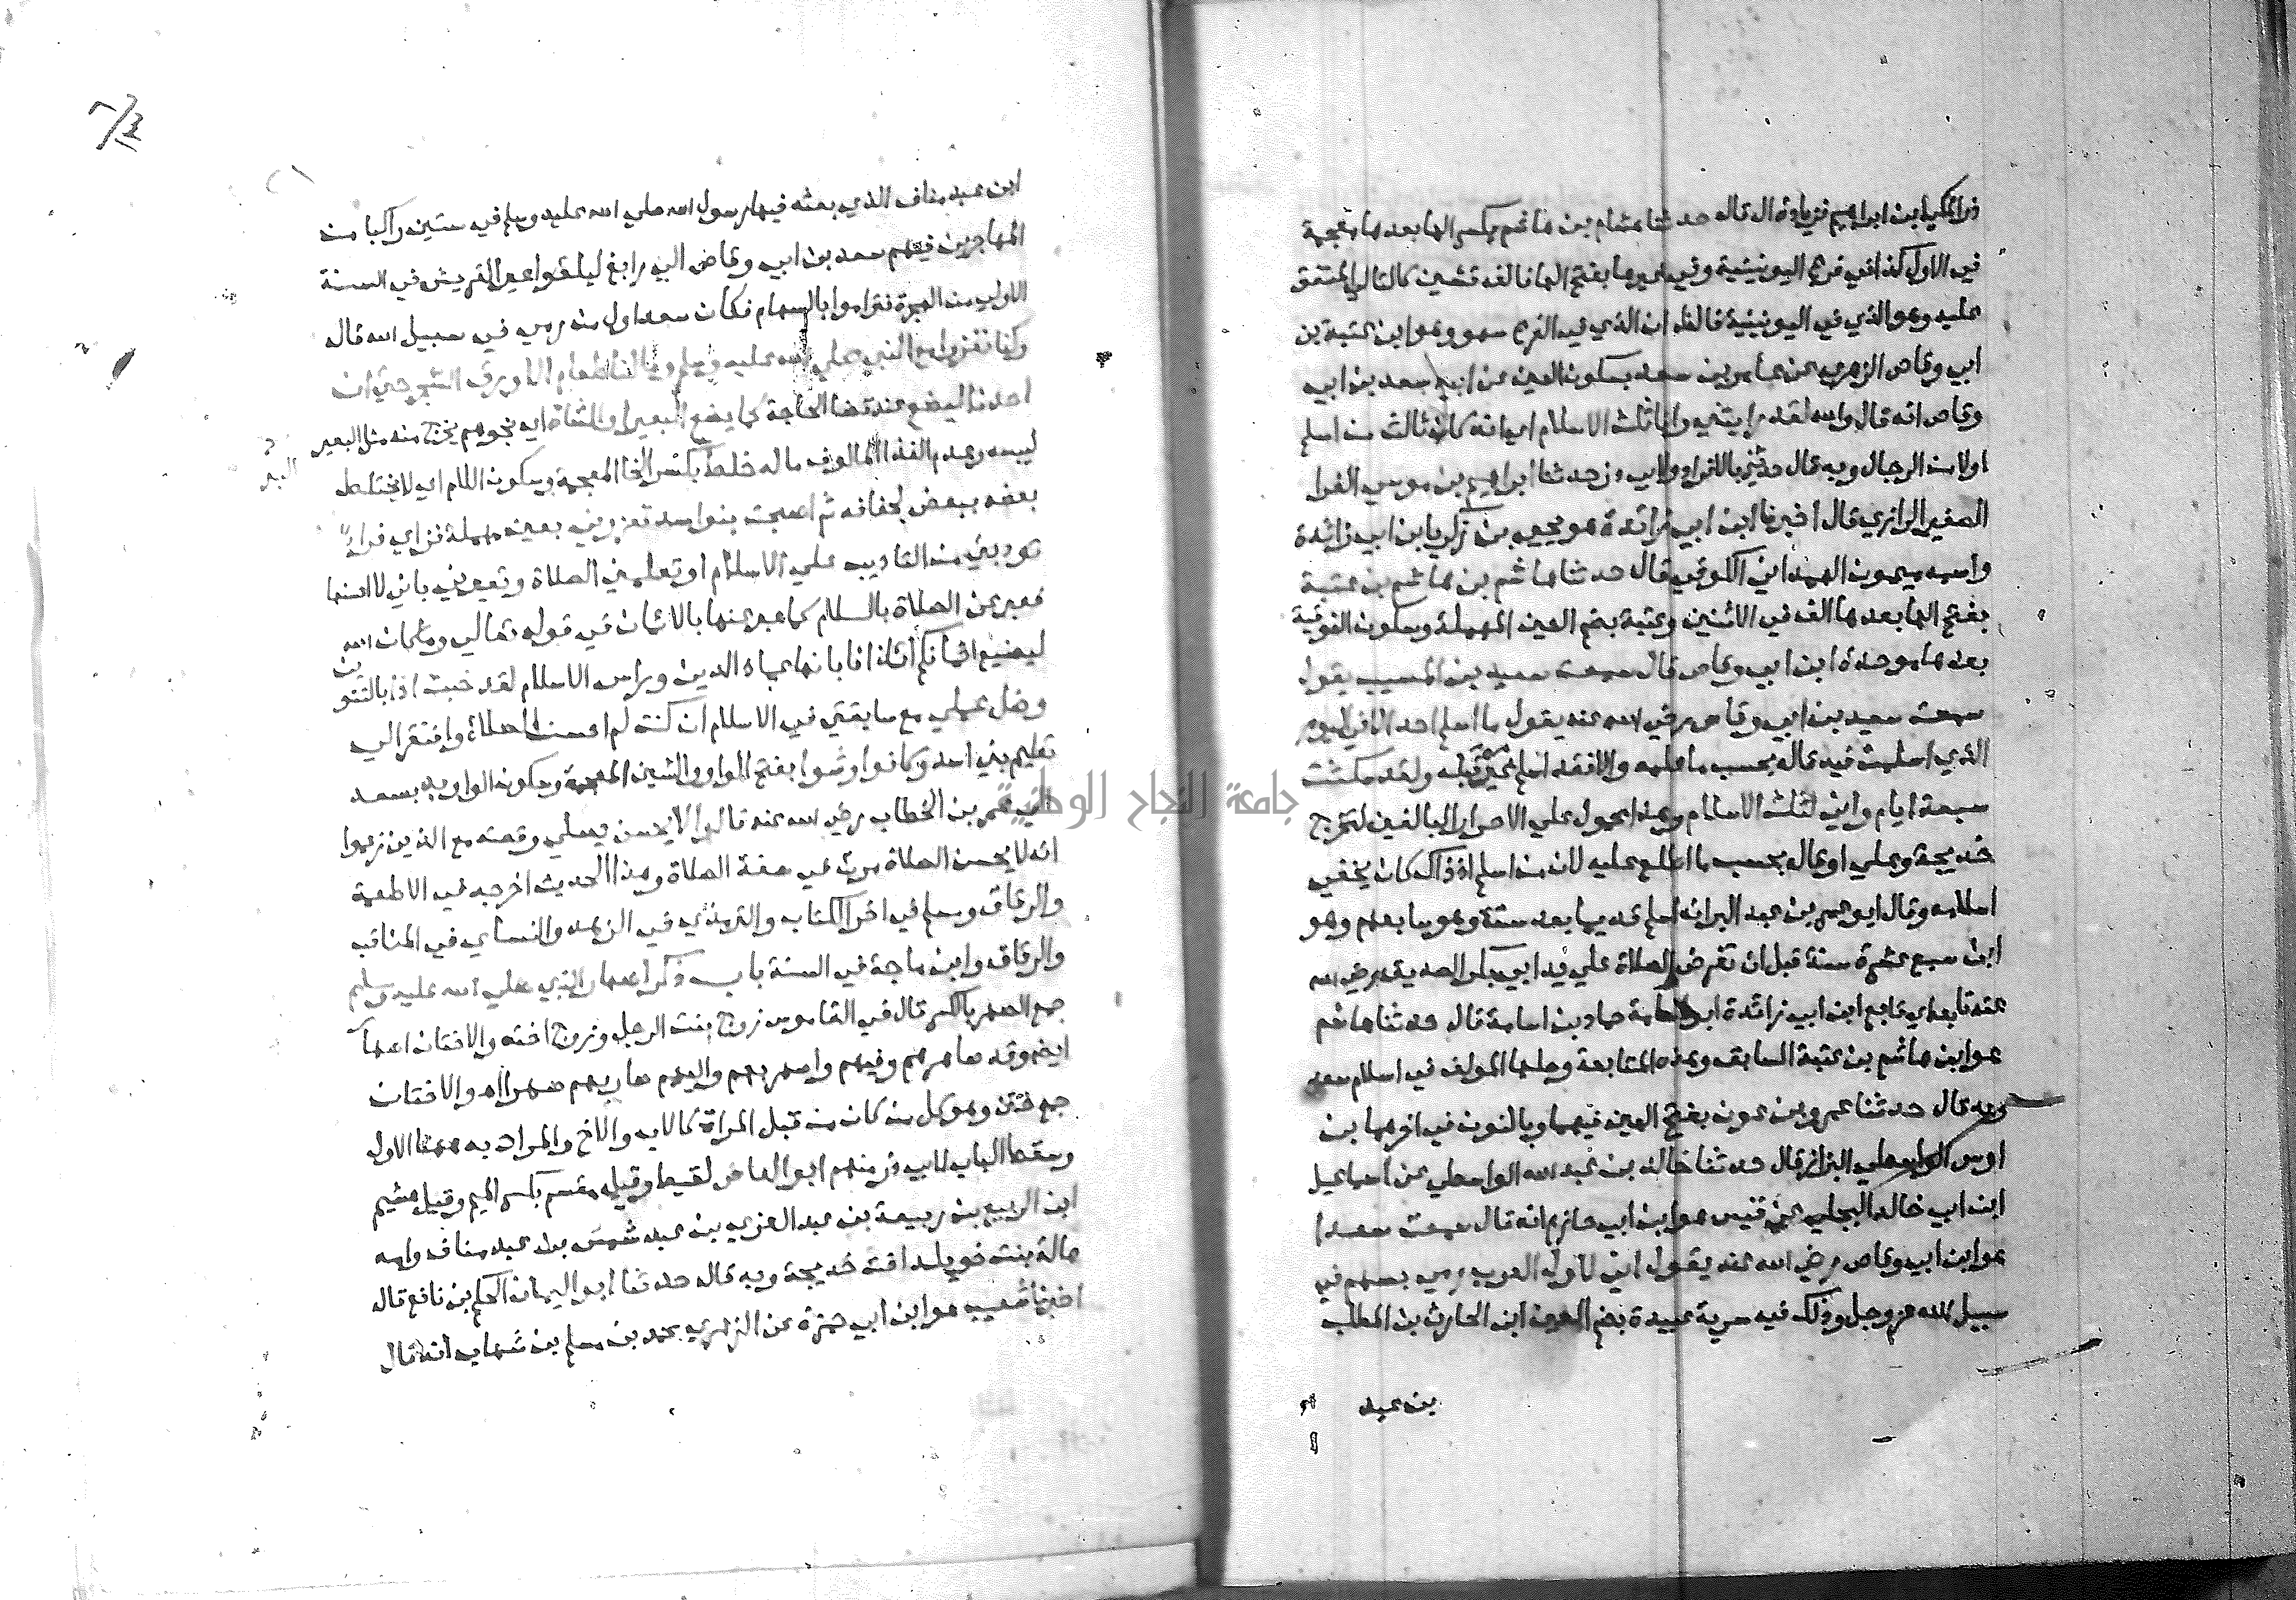 ذر المكي ابن ابراهيم بزيادة ال قال حدثنا هشام بن هاشم بكسر الها بعدها معجمة
في الاول كذا في فرع اليونينية وفي غيرها بفتح الها فالف فشين كالتالي المتفق
عليه وهو الذي في اليونينية فالظاهر ان الذي في الفرع سهو وهو ابن عتبة بن
ابي وقاص الزهري عن عامر بن سعد بسكون العين عن ابيه سعد بن ابي
وقاص انه قال والله لقد رايتني وانا ثلث الاسلام اي انه كان ثالث من اسلم
اولا من الرجال وبه قال حدثني بالافراد ولابي ذر حدثنا ابراهيم بن موسي الفرا
الصغير الرازي قال اخبرنا ابن ابي زائدة هو يحيي بن زكريا بن ابي زائدة
واسمه ميمون الهمداني الكوفي قال حدثنا هاشم بن هاشم بن عتبة
بفتح الها بعدها الف في الاثنين وعتبة بضم العين المهملة وسكون الفوقية
بعدها موحدة ابن ابي وقاص قال سمعت سعيد بن المسيب يقول
سمعت سعد بن ابي وقاص رضي الله عنه يقول ما اسلم احد الا في اليوم
الذي اسلمت فيه قاله بحسب ما علمه والا فقد اسلم غيره قبله ولقد مكثت
سبعة ايام واني لثلث الاسلام وهذا محمول علي الاحرار البالغين لتخرج
خديجة وعلي او قاله بحسب ما اطلع عليه لان من اسلم اذ ذاك كان يخفي
اسلامه وقال ابو عمر بن عبد البر انه اسلم قديما بعد ستة وهو سابعهم وهو
ابن سبع عشرة سنة قبل ان تفرض الصلاة علي يد ابي بكر الصديق رضي الله
عنه تابعه اي تابع ابن ابي زائدة ابو اسامة حماد بن اسامة قال حدثنا هاشم
هو ابن هاشم بن عتبة السابق وهذه المتابعة وصلها المولف في اسلام سعد
وبه قال حدثنا عمرو بن عون بفتح العين فيهما وبالنون في اخرهما بن
اوس الواسطي البزاز قال حدثنا خالد بن عبد الله الواسطي عن اسماعيل
ابن ابي خالد البجلي عن قيس هو ابن ابي حازم انه قال سمعت سعدا
هو ابن ابي وقاص رضي الله عنه يقول اني لاول العرب رمي بسهم في
سبيل الله عز وجل وذلك فيه سرية عبيدة بضم العين ابن الحارث بن المطلب
بن عبد
ابن عبد مناف الذي بعثه فيها رسول الله صلي الله عليه وسلم في ستين راكبا من
المهاجرين فيهم سعد بن ابي وقاص الي رابغ ليلقوا عير القريش في السنة
الاولي من الهجرة فتراموا بالسهام فكان سعد اول من رمي في سبيل الله قال
وكنا نغزوا مع النبي صلي الله عليه وسلم وما لنا طعام الا ورق الشجر حتي ان
احدنا ليضع عند قضا الحاجة كما يضع البعير او الشاة اي نجوهم يخرج منه مثل البعير
ليبسه وعدم الغذا المالوف ماله خلط بكسر الخا المعجمة وسكون اللام اي لا يختلط
بعضه ببعض لجفافه ثم اصبحت بنو اسد تعزرني بعين مهملة فزاي فرا
تودبني من التاديب علي الاسلام او تعلمني الصلاة وتعيرني باني لا احسنها
فعبر عن الصلاة بالسلام كما عبر عنها بالايمان في قوله تعالي وما كان الله
ليضيع ايمانكم ايذانا بانها عماد الدين وراس الاسلام لقد خبت اذا بالتنو
ين
وضل عملي مع سابقتي في الاسلام ان كنت لم احسن الصلاة وافتقر الي
تعليم بني اسد وكانوا وشوا بفتح الواو والشين المعجمة وسكون الواو به بسعد
الي عمر بن الخطاب رضي الله عنه قالوا لا يحسن يصلي وقصته مع الذين زعموا
انه لا يحسن الصلاة مرت في صفة الصلاة وهذا الحديث اخرجه في الاطعمة
والرقاق ومسلم في اخر الكتاب والترمذي في الزهد والنسائي في المناقب
والرقاق وابن ماجة في السنة باب ذكر اصهار النبي صلي الله عليه وسلم
جمع الصهر بالكسر قال في القاموس زوج بنت الرجل وزوج اخته والاختان اصهار
ايضا وقد صاهرهم وفيهم واصهر بهم واليهم صار بهم صهرا اه والاختان
جمع ختن وهو كل من كان من قبل المراة كالاب والاخ والمراد به ههنا الاول
وسقط الباب لابي ذر منهم ابو العاص لقيط وقيل مقسم بكسر الميم وقيل هشيم
ابن الربيع بن ربيعة بن عبد العزي بن عبد شمس بن عبد مناف وامه
هالة بنت خويلد اخت خديجة وبه قال حدثنا ابو اليمان الحكم بن نافع قال
اخبرنا شعيب هو ابن ابي حمزة عن الزهري محمد بن مسلم بن شهاب انه قال
جامعة النجاح الوطنية